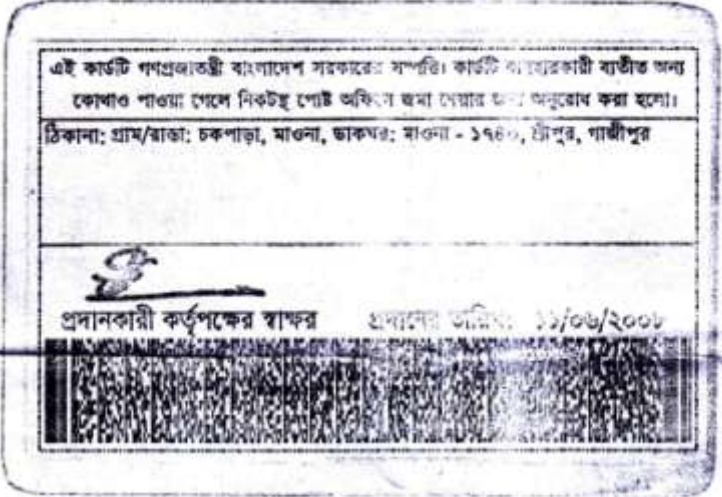 এই কার্ডটি গণপ্রজাতন্ত্রী বাংলাদেশ সরকারের সম্পত্তি। কার্ডটি ব্যবহারকারী ব্যতীত অন্য
কোথাও পাওয়া গেলে নিকটস্থ পোষ্ট অফিসে জমা দেয়ার জন্য অনুরোধ করা হলো।
ঠিকানা: গ্রাম/রাস্তা: চকপাড়া, মাওনা, ডাকঘর: মাওনা - ১৭৪০, শ্রীপুর, গাজীপুর
প্রদানকারী কর্তৃপক্ষের স্বাক্ষর প্রদানের তারিখ: ১১/০৬/২০০৮